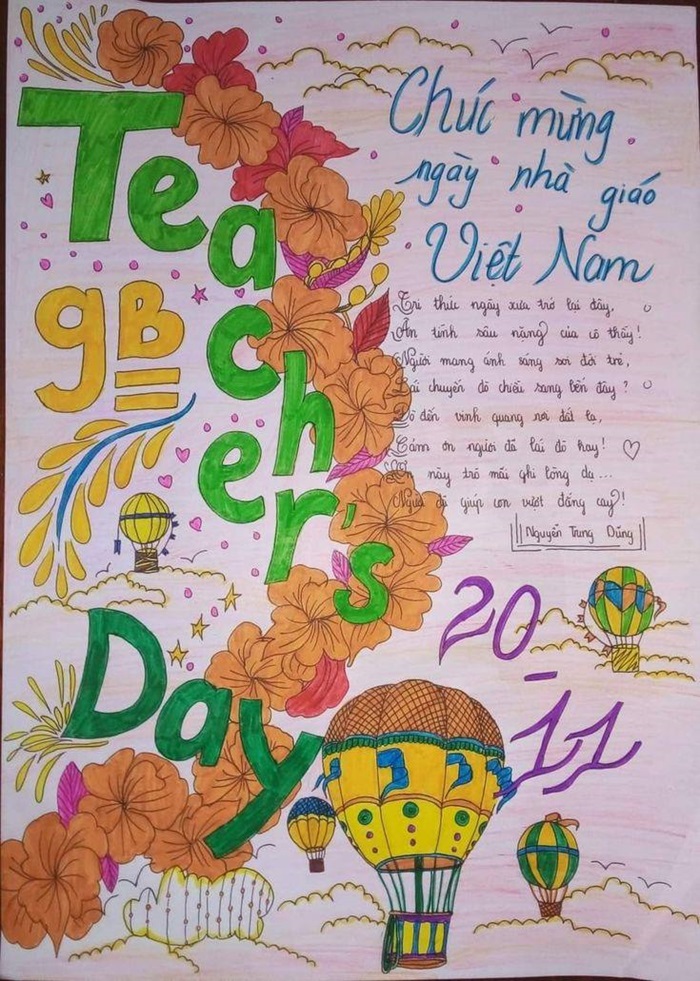 Teacher's
Day
9B
Chúc mừng
ngày nhà giáo
Việt Nam
Tri thức ngày xưa trở lại đây,
Ân tình sâu nặng của cô thầy!
Người mang ánh sáng soi đời trẻ,
Lái chuyến đò chiều sang bến đây?
Đò đến vinh quang nơi đất lạ,
Cám ơn người đã lái đò hay!
Ơn này trò mãi ghi lòng dạ...
Người đã giúp con vượt đắng cay!
Nguyễn Trung Dũng
20-11